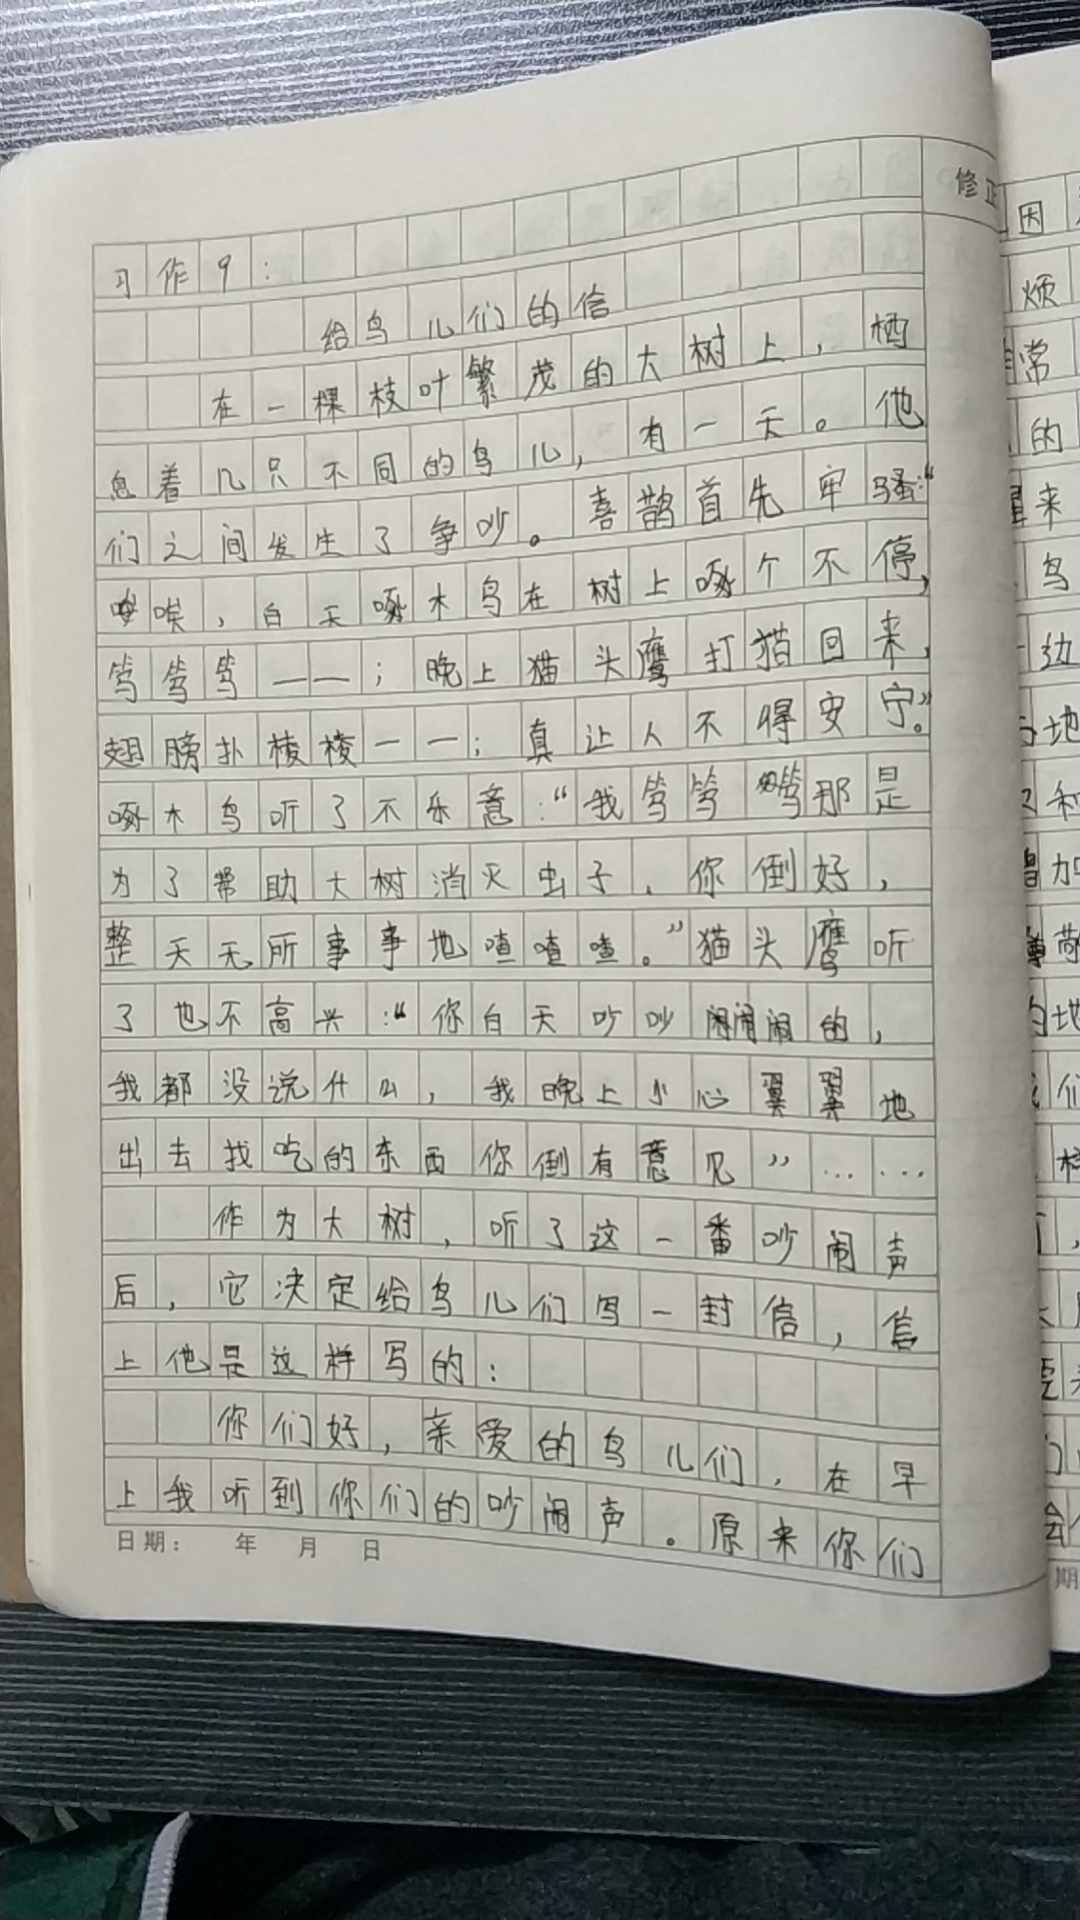 习作9：
给鸟儿们的信
在一棵枝叶繁茂的大树上，栖
息着几只不同的鸟儿，有一天。他
们之间发生了争吵。喜鹊首先牢骚：“
唉唉，白天啄木鸟在树上啄个不停，
笃笃笃——；晚上猫头鹰打猫回来，
翅膀扑棱棱——；真让人不得安宁。”
啄木鸟听了不乐意：“我笃笃笃那是
为了帮助大树消灭虫子，你倒好，
整天无所事事地喳喳喳。”猫头鹰听
了也不高兴：“你白天吵吵闹闹的，
我都没说什么，我晚上小心翼翼地
出去找吃的东西你倒有意见”……
作为大树，听了这一番吵闹声
后，它决定给鸟儿们写一封信，信
上他是这样写的：
你们好，亲爱的鸟儿们，在早
上我听到你们的吵闹声。原来你们
日期： 年 月 日
修正
因
烦
常
的
来
鸟
边
地
和
加
敬
地
们
期